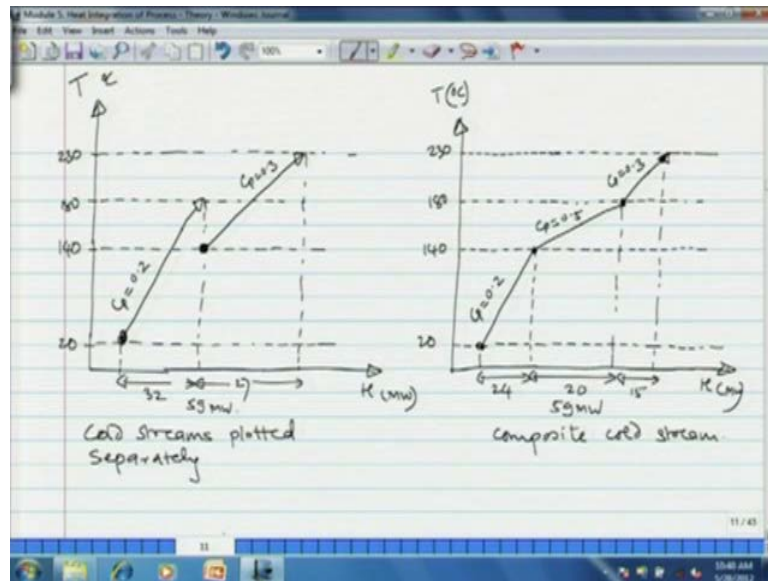 Module 5. Heat Integration of Process - Theory - Windows Journal
File Edit View Insert Actions Tools Help
100%
T °C
230
180
140
20
CP=0.2
CP=0.3
32
27
59 MW.
H (MW)
Cold streams plotted
Separately
T(°C)
230
180
140
20
CP=0.2
CP=0.5
CP=0.3
24
20
15
59 MW
H (MW)
composite cold stream.
11 / 43
11
10:40 AM